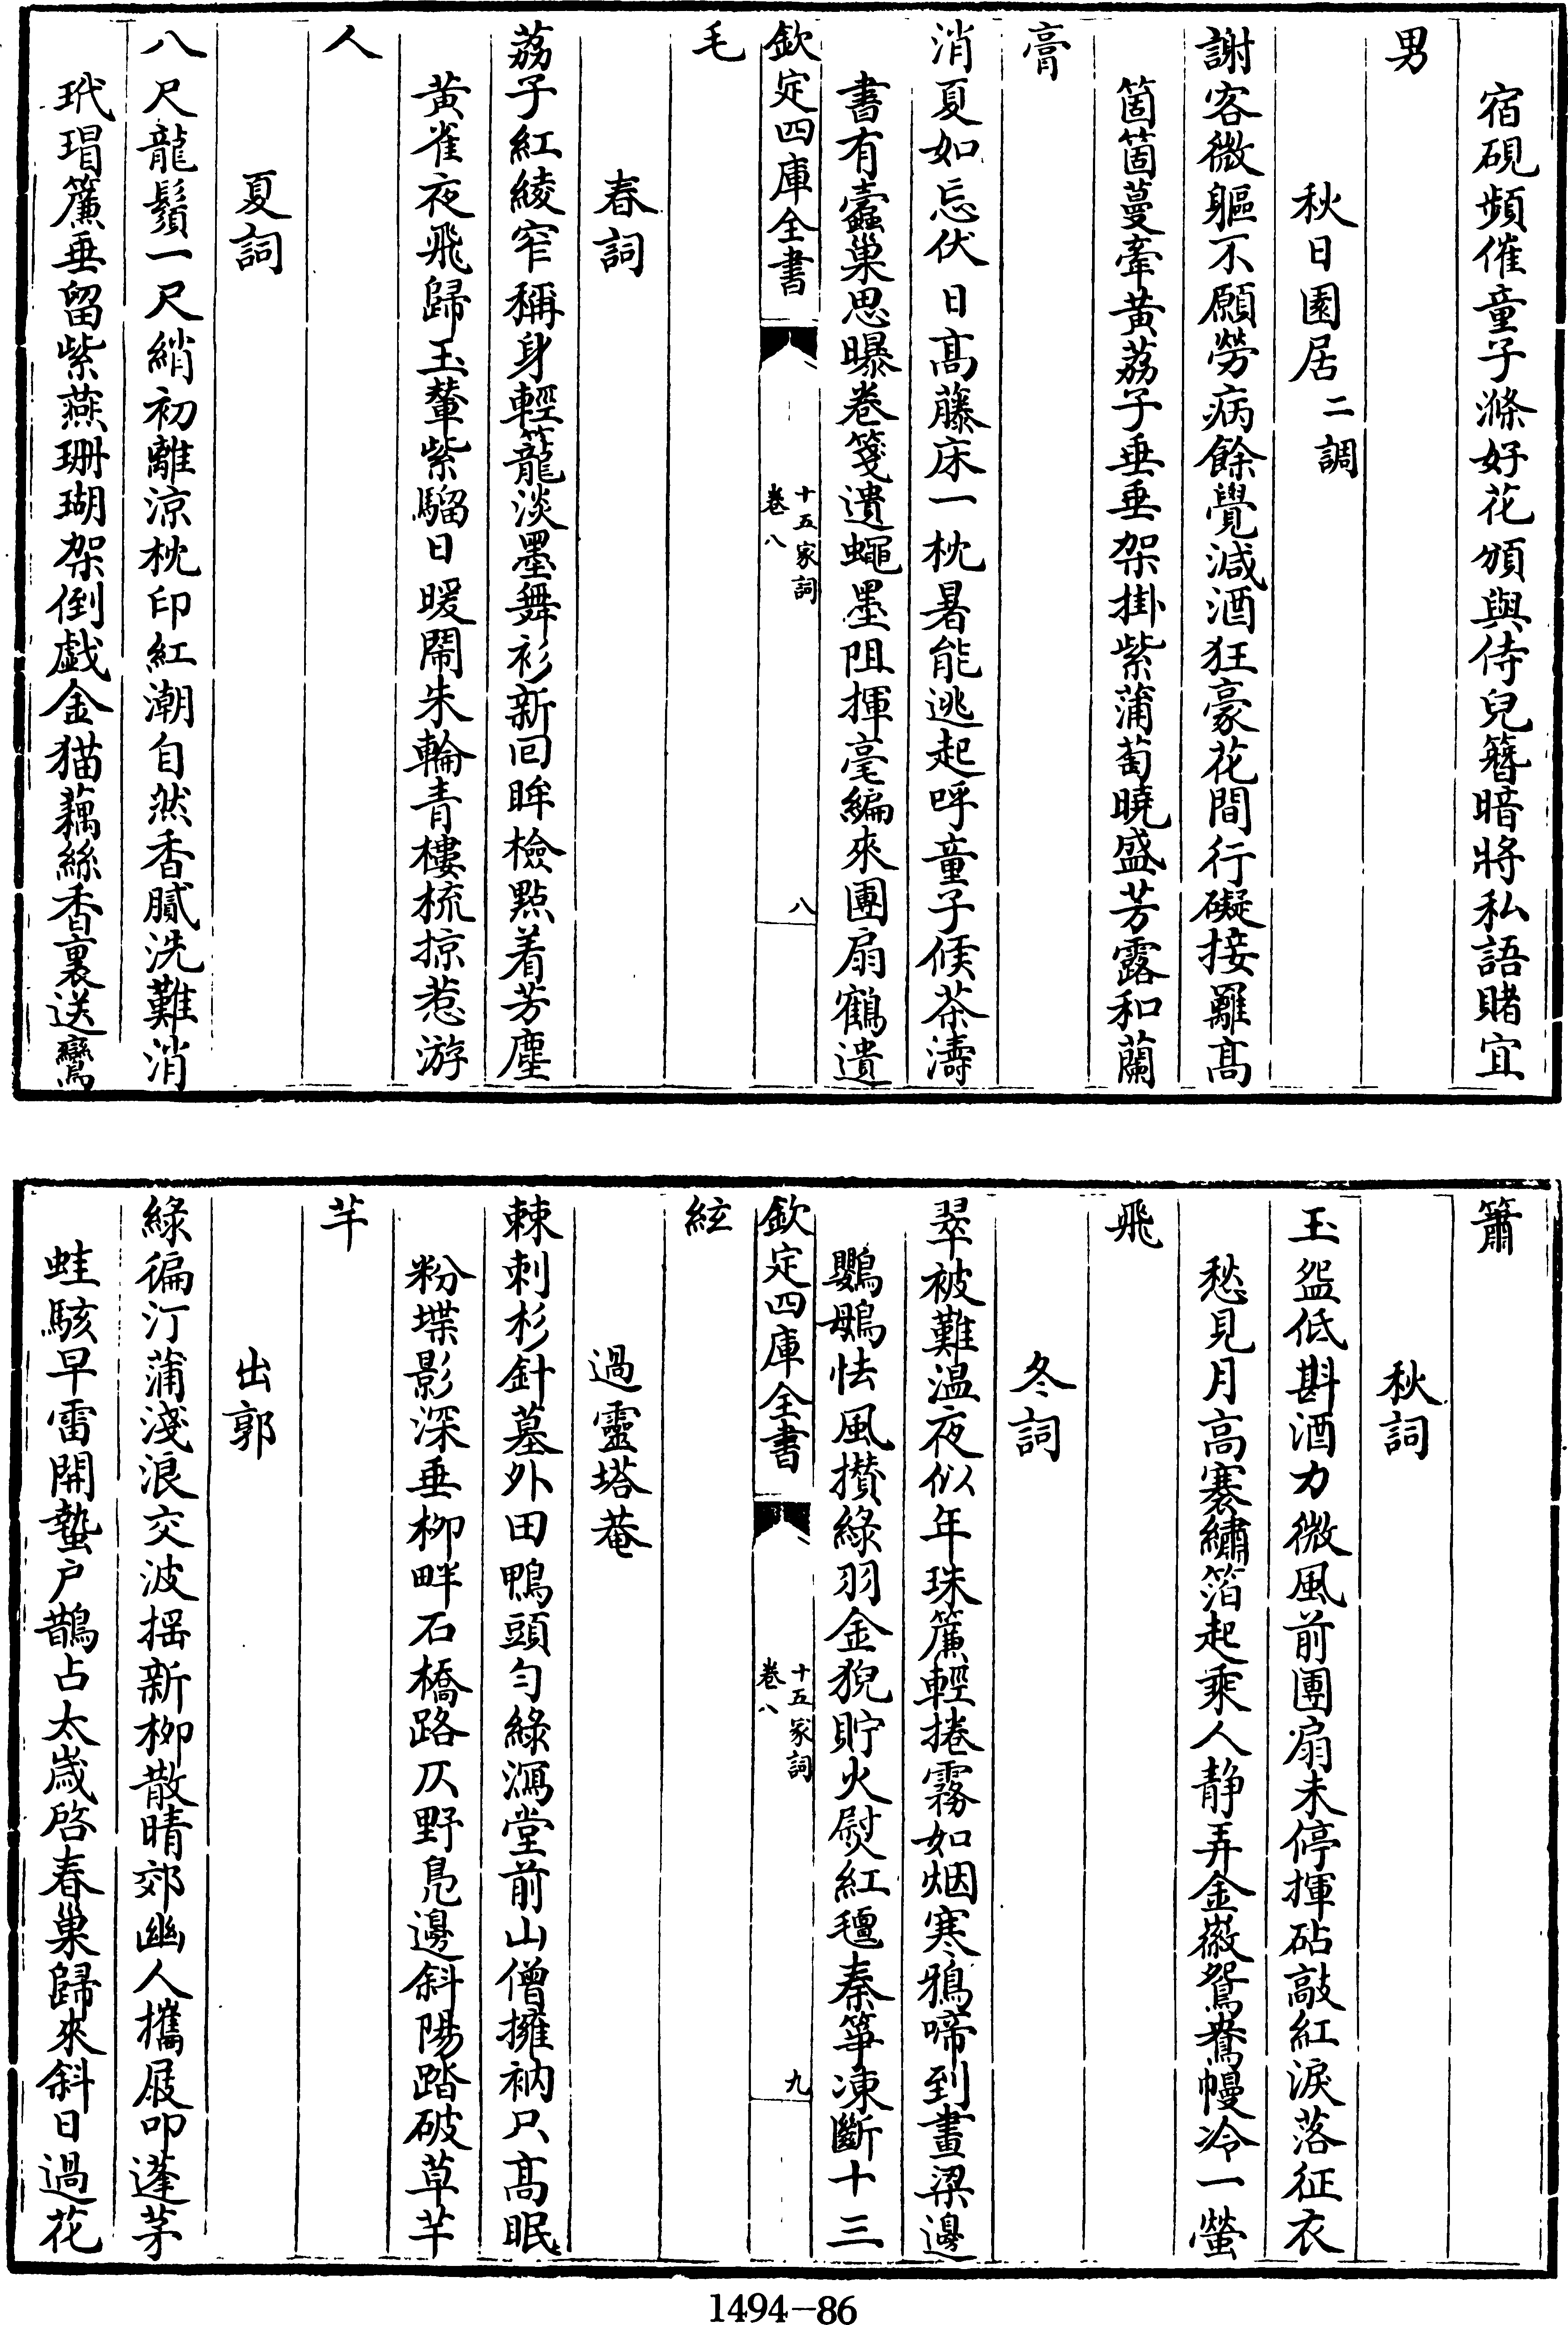 宿硯頻催童子滌好花頒與侍兒簪暗將私語賭宜
男
秋日園居二調
謝客微軀不願勞病餘覺減酒狂豪花間行礙接䍦髙
箇箇蔓牽黄荔子垂垂架掛紫蒲萄曉盛芳露和蘭
膏
消夏如忘伏日髙藤床一枕暑能逃起呼童子候茶濤
書有蠧巢思曝卷箋遺蠅墨阻揮毫編來團扇鶴遺
欽定四庫全書
十五家詞
卷八
八
毛
春詞
荔子紅綾窄稱身輕籠淡墨舞衫新回眸檢點着芳塵
黄雀夜飛歸玉輦紫騮日暖鬧朱輪青樓梳掠惹游
人
夏詞
八尺龍鬚一尺綃初離涼枕印紅潮自然香膩洗難消
玳瑁簾垂留紫燕珊瑚架倒戲金猫藕絲香裏送鸞
簫
秋詞
玉盌低斟酒力微風前團扇未停揮砧敲紅淚落征衣
愁見月高褰繡箔起乘人静弄金徽鴛鴦幔冷一螢
飛
冬詞
翠被難温夜似年珠簾輕捲霧如烟寒鴉啼到畫梁邊
鸚鵡怯風攅綠羽金猊貯火熨紅氊秦箏凍斷十三
欽定四庫全書
十五家詞
卷八
九
絃
過靈塔菴
棘刺杉針墓外田鴨頭勻綠㵼堂前山僧擁衲只髙眠
粉堞影深垂柳畔石橋路仄野凫邊斜陽踏破草芊
芊
出郭
綠徧汀蒲淺浪交波揺新柳散晴郊幽人攜屐叩蓬茅
蛙駭早雷開蟄户鵲占太歲啓春巢歸來斜日過花
1494-86